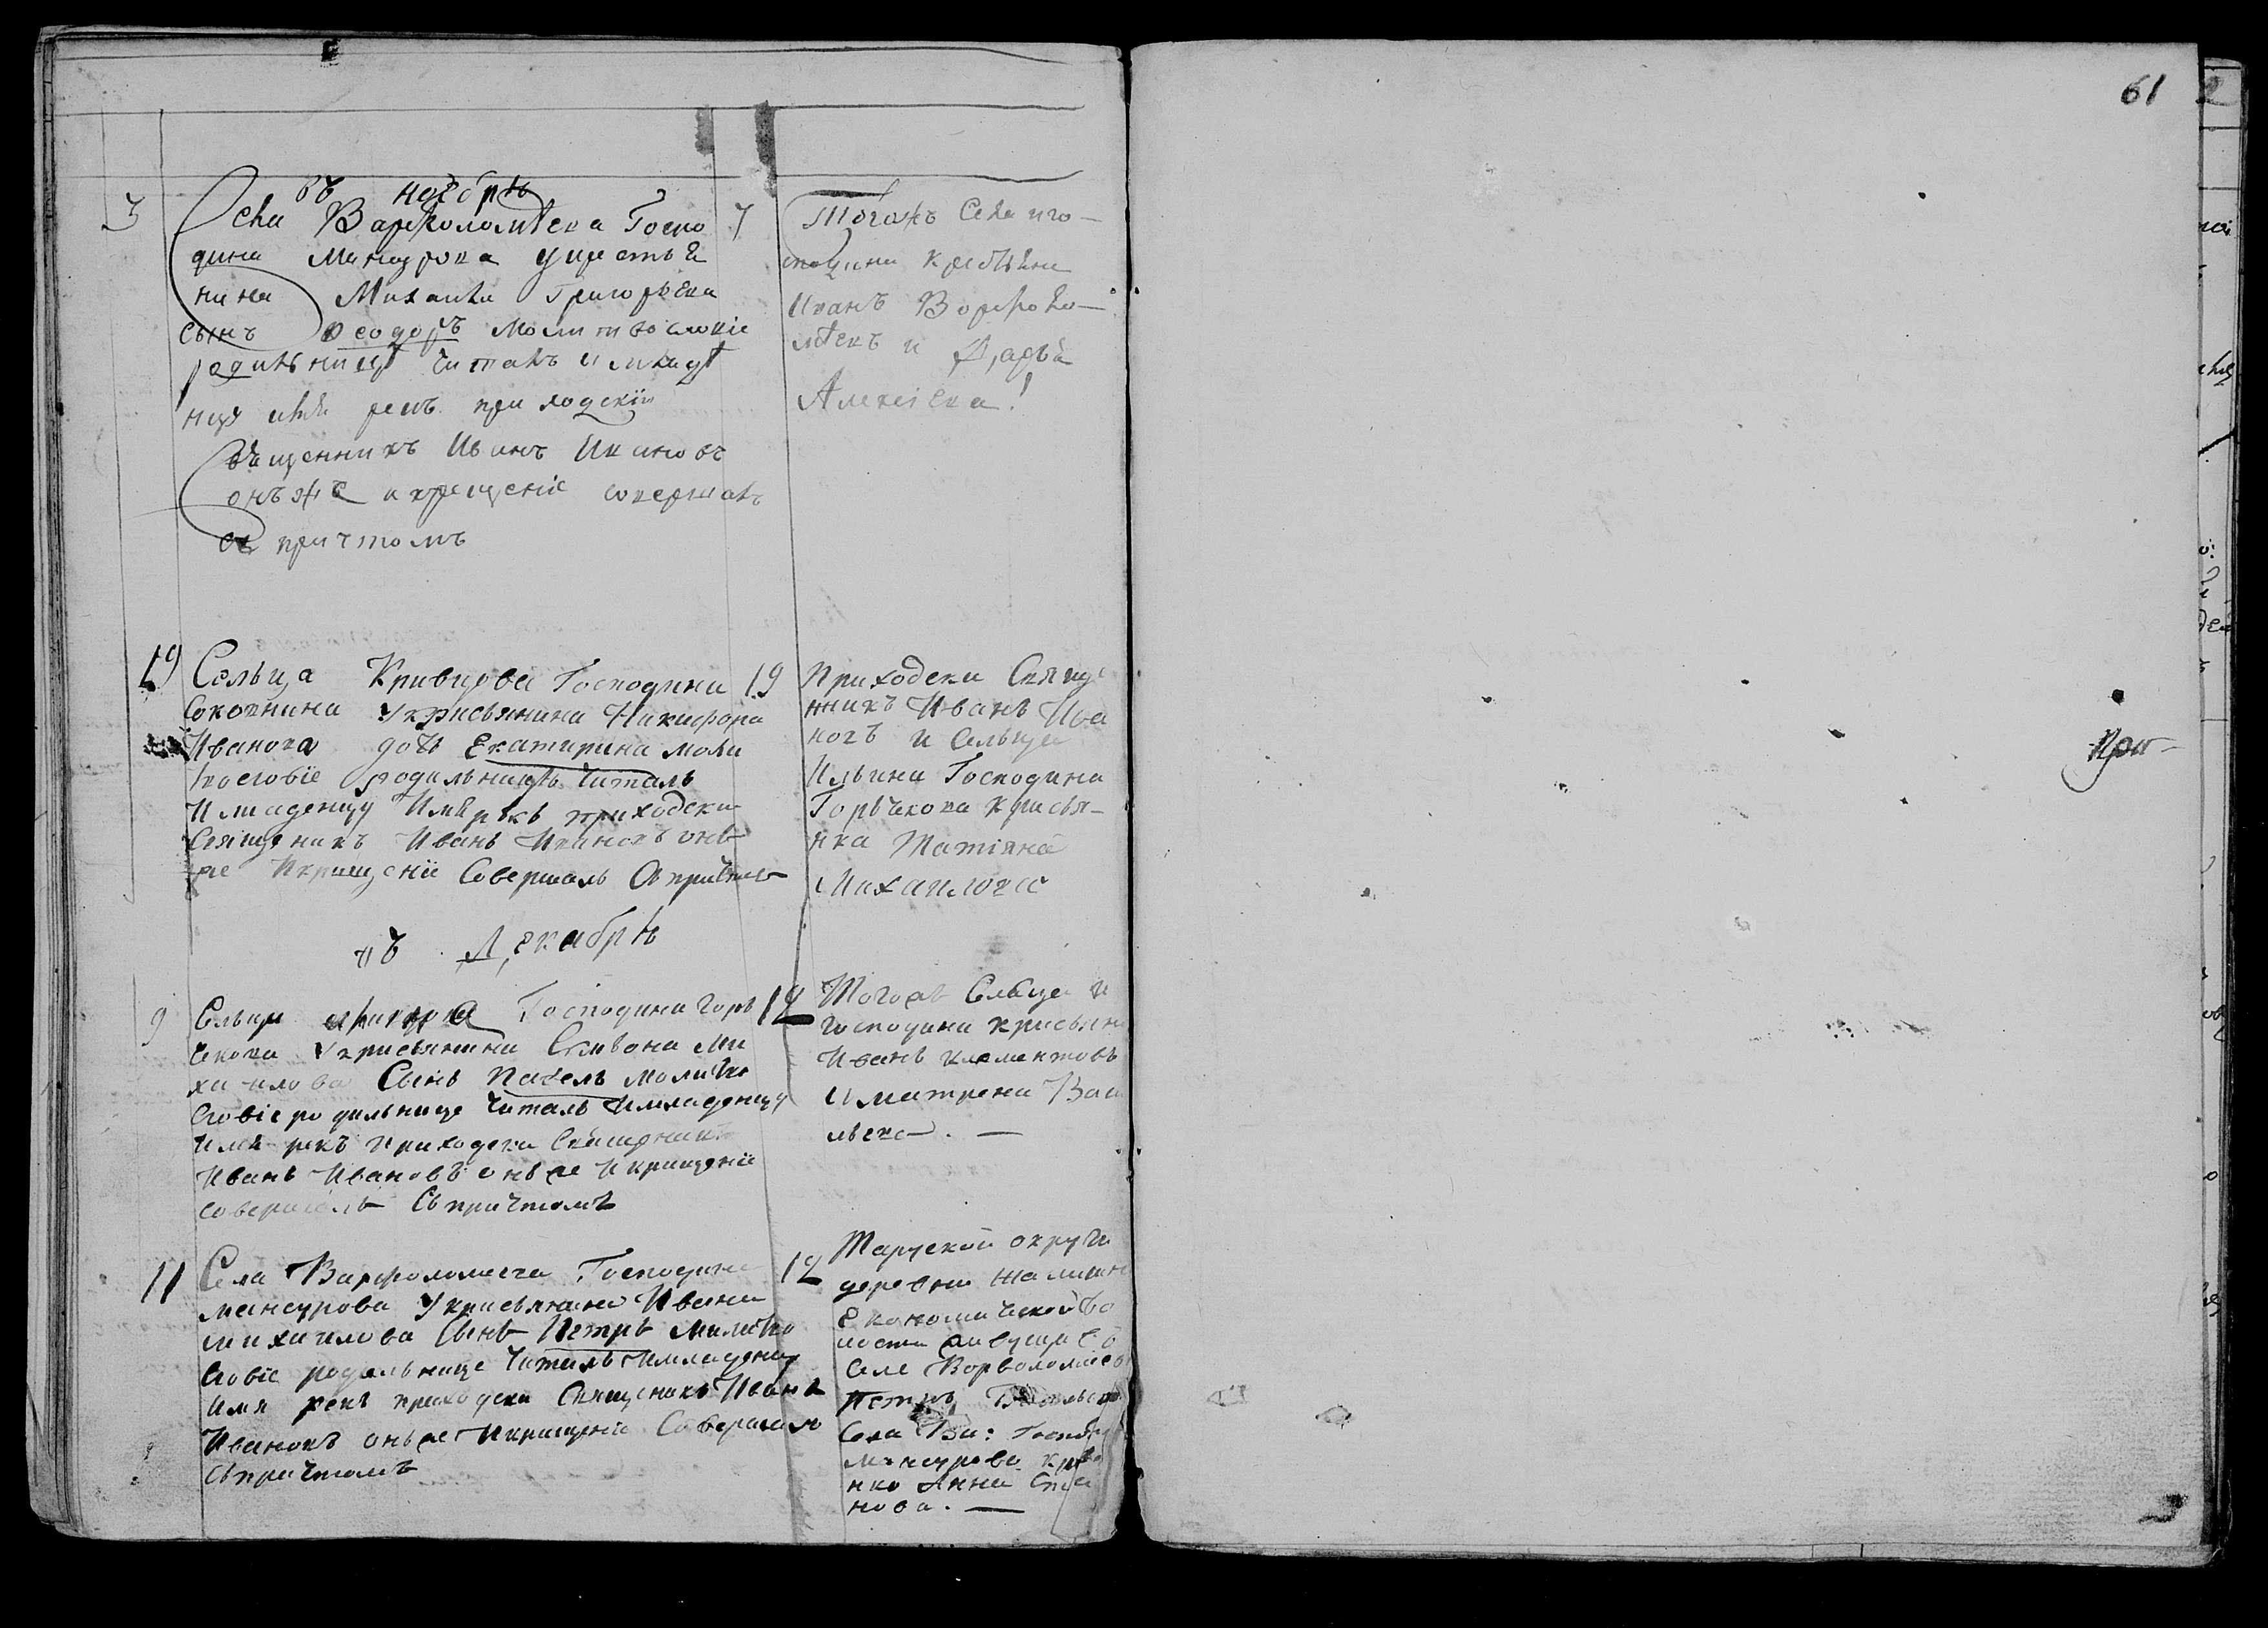 61
въ ноебрѣ
3
Села Варфоломѣева Госпо
дина Мансурова укрестья
нина Михаила Григорьева
сынъ Ѳеодоръ молитвословіе
родильницѣ читалъ имладе
нцу имя рекъ приходскіи
Священникъ Иванъ Ивановъ
онъже икрещеніе совершалъ
съ причтомъ
7
Тогожъ Села иго-
сподина крестьяне
Иванъ Ворфоло-
мѣевъ и Дарья
Алексіева
19
Сельца Кривцова Господина
Укрисьянина Никифора
Иванова дочь Екатирина моли
вословіе родильницѣ Читалъ
Имладенцу Имя рекъ приходски
Священикъ Иванъ Ивановъ онъ
же Икрищеніе Совершалъ Съпричтом
19
Приходски Свяще
нникъ Иванъ Ива
новъ и Сельца
Ильина Господина
Горьчкова Крисья-
нка Татіяна
Михаилова
въ Декабрѣ
9
Сельца Господина Горь
чкова Укрисьянина Михаилова Сынъ Павелъ молитво
словіе родильнице Читалъ Имладенцу
Имя рекъ Приходски Священикъ
Иванъ Ивановъ онъже Икрищеніе
Совершалъ Съпричтомъ
Тогожъ Сельца и
господина крисьяни
Иванъ Клементовъ
И матрена Васи
льева. -
11
Села Варфоломеева Господина
мансурова Укрисьянина Ивана
михаилова Сынъ Петръ молитво
словіе родильнице Читалъ Имладенцу
Имя рекъ приходски Священикъ Иванъ
Ивановъ онъже Икрищеніе Совершалъ
Съпричтомъ
12
Таруской округи
деревни
Економической во
лости живущи
Селе Ворволомеев
Петръ
Села Ва: Господ
мансурова кре
нка Анна
нова. -
При-